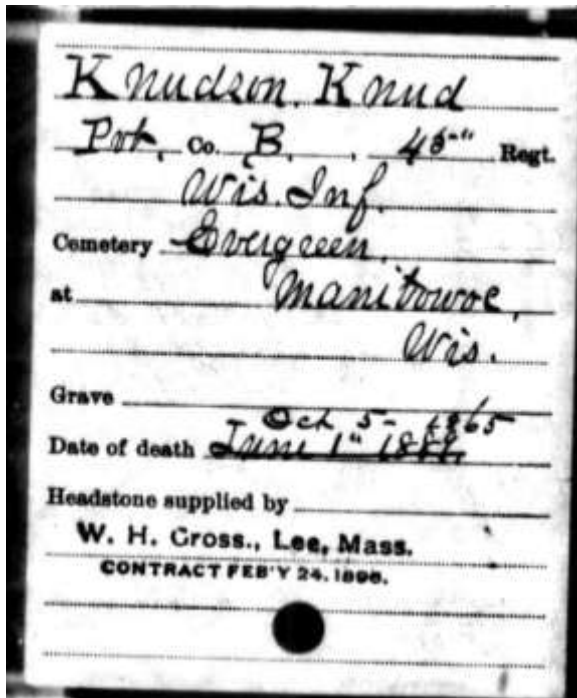 Knudson, Knud
Pvt., Co. B, 45" Regt.
Wis. Inf.
Cemetery Evergreen,
at Manitowoc,
Wis.
Grave
Oct 5- 1865
Date of death June 1"
Headstone supplied by
W. H. Gross., Lee, Mass.
CONTRACT FEB'Y 24, 1898.